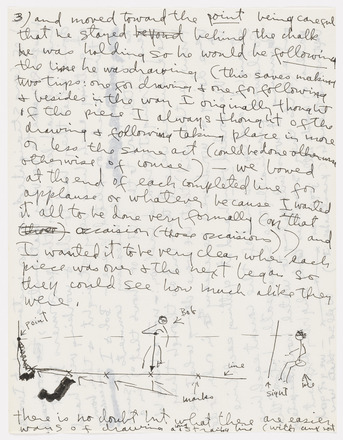 3) and moved toward the point being careful
that he stayed beyond behind the chalk
he was holding so he would be following
the line he was drawing (this saves making
two trips: one for drawing & one for following
& besides in the way I originally thought
of the piece I always thought of the
drawing & following taking place in more
or less the same act (could be done otherwise
otherwise of course) — we bowed
at the end of each completed line for
applause or whatever because I wanted
it all to be done very formally (on that
occaision (those occaisions)) and
I wanted it to be very clear when each
piece was over & the next began so
they could see how much alike they
were.
point
Bob
line
marks
sight
me
there is no doubt but what there are easier
ways of drawing straight lines (with